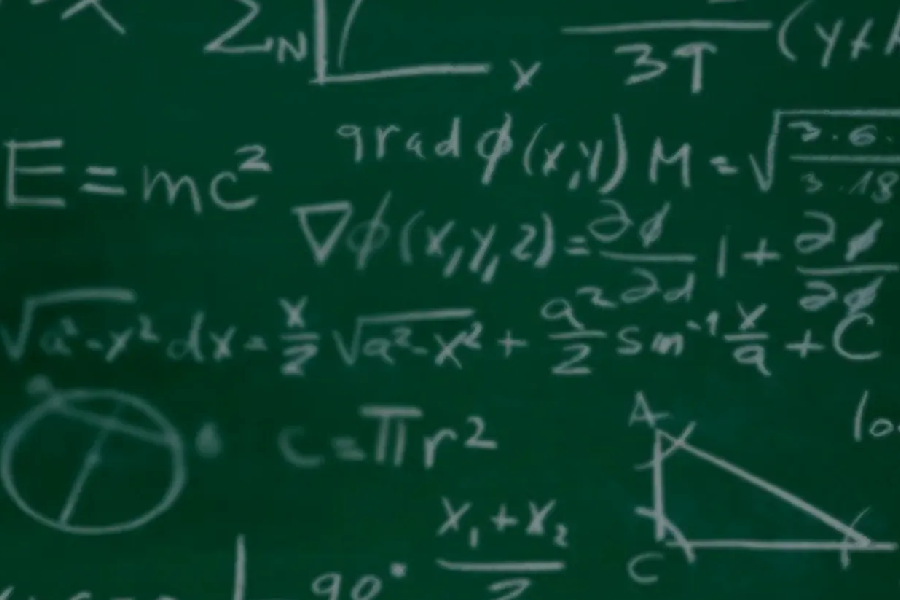 Σ_N
x
3T
(y+
E = mc²
grad ϕ(x,y) M = √(3·6· / 3·18
∇ϕ(x,y,z) = ∂ϕ/∂d i + ∂ϕ/∂ϕ
√a²-y² dx = x/2 √a²-x² + a²/2 sin⁻¹ x/a + C
c = πr²
A
lo
x₁+x₂
C
90°
2